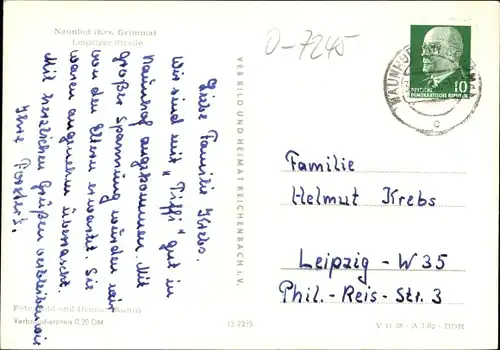 Naunhof (Krs. Grimma)
Leipziger Straße
O-7245
Liebe Familie Krebs.
Wir sind mit "Tiffi" gut in
Naunhof angekommen. Mit
großer Spannung wurden wir
von den Eltern erwartet. Sie
waren angenehm überrascht.
Mit herzlichen Grüßen verbleiben wir
Ihre
VEB BILD UND HEIMAT REICHENBACH I. V.
DEUTSCHE
DEMOKRATISCHE REPUBLIK
10
NAUNHOF
c
Familie
Helmut Krebs
Leipzig - W 35
Phil.-Reis-Str. 3
Foto: Bild und Heimat
Verbraucherpreis 0,20 DM
V 11 28 - A 3/62 - DDR